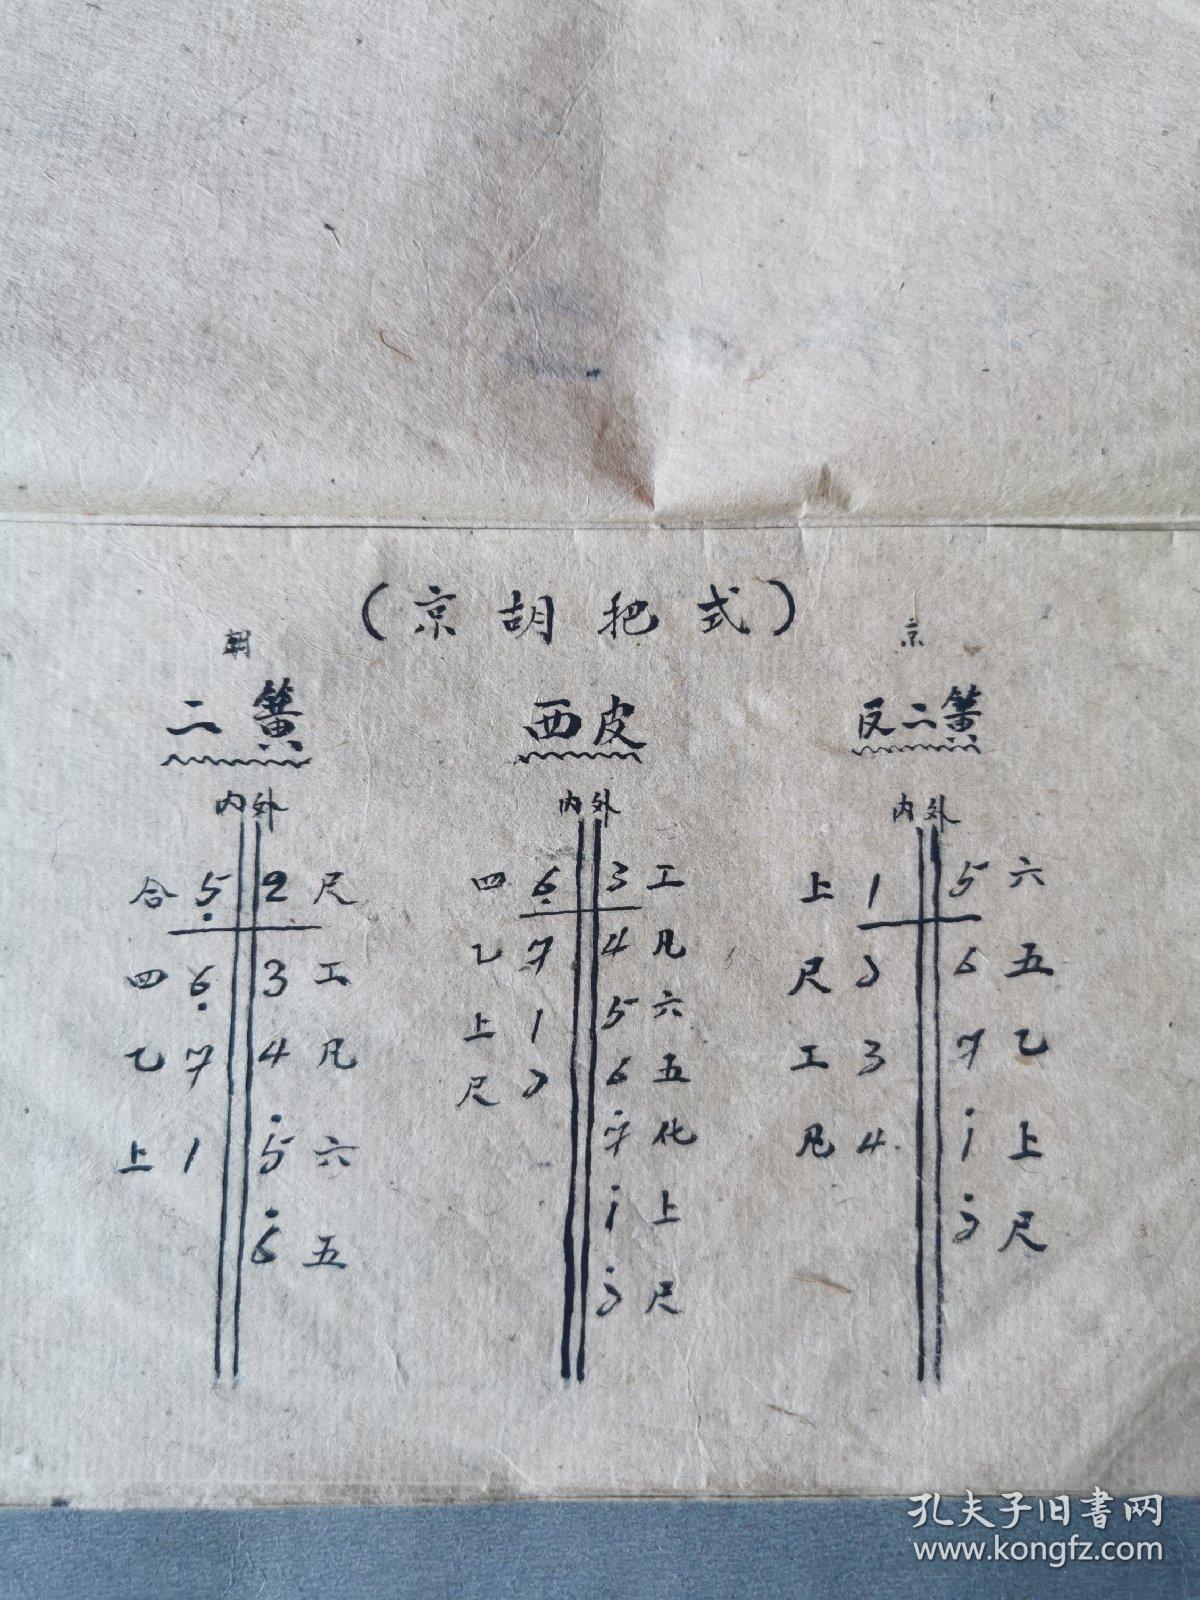 （京胡把式）
胡 京
二簧 西皮 反二簧
内外 内外 内外
合 5̣ 2 尺 四 6̣ 3 工 上 1 5 六
四 6̣ 3 工 乙 7 4 凡 尺 2 6 五
乙 7 4 凡 上 1 5 六 工 3 7 乙
上 1 5̇ 六 尺 2 6 五 凡 4 1̇ 上
6̇ 五 7̇ 化 2̇ 尺
1̇ 上
2̇ 尺
孔夫子旧书网
www.kongfz.com